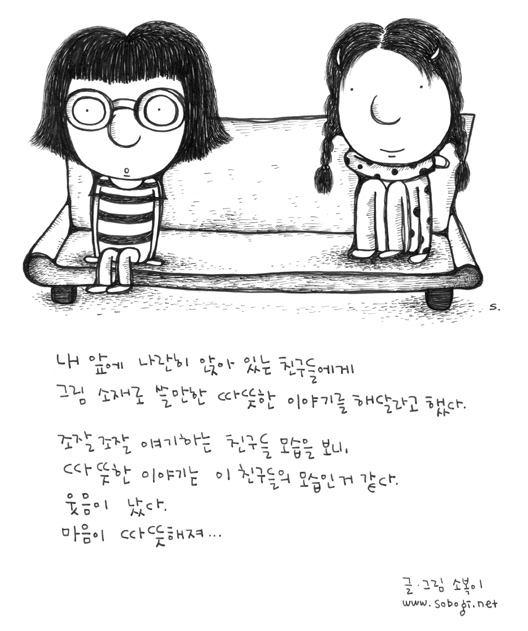 S.
내 앞에 나란히 앉아 있는 친구들에게
그림 소재로 쓸만한 따뜻한 이야기를 해달라고 했다.
조잘조잘 얘기하는 친구들 모습을 보니,
따뜻한 이야기는 이 친구들의 모습인거 같다.
웃음이 났다.
마음이 따뜻해져...
글·그림 소복이
www.sobogi.net